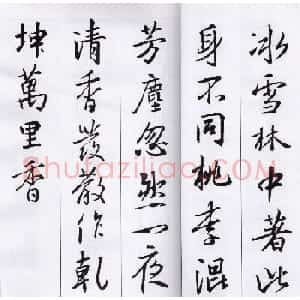 冰雪林中著此
身不同桃李混
芳塵忽然一夜
清香發散作乾
坤萬里春
Shufaziliao.com